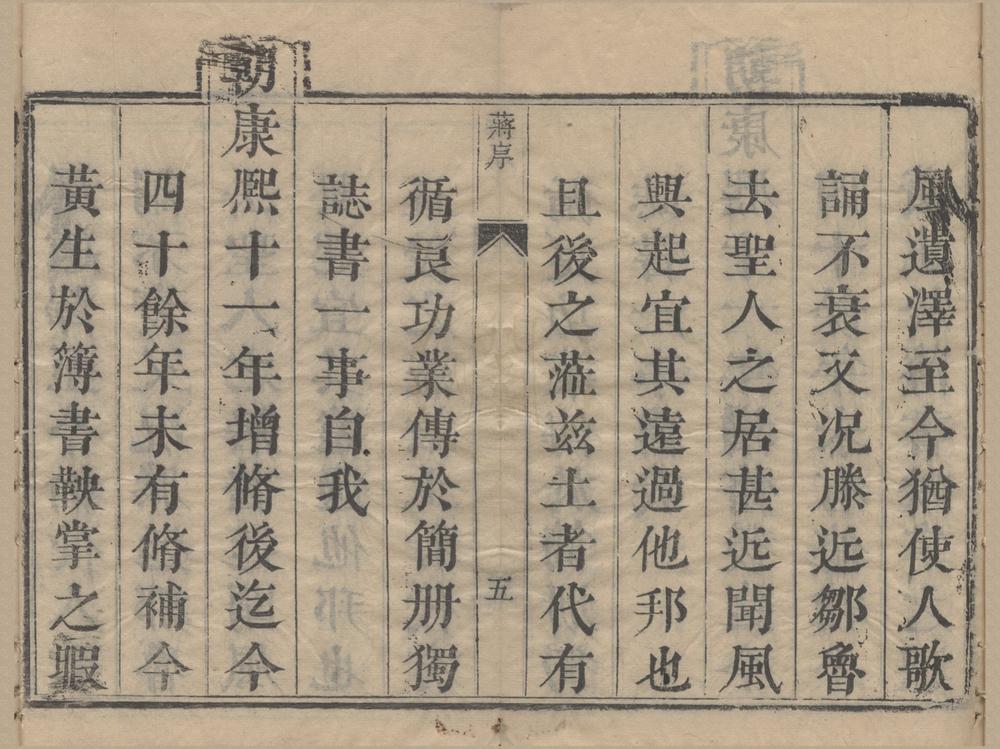 風遺澤至今猶使人歌
誦不衰又況滕近鄒魯
去聖人之居甚近聞風
興起宜其遠過他邦也
且後之蒞茲土者代有
蔣序
五
循良功業傳於簡册獨
誌書一事自我
朝康熙十一年增脩後迄今
四十餘年未有脩補今
黃生於簿書鞅掌之暇